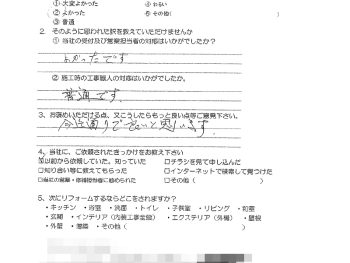 ①大変よかった ④わるい
②よかった ⑤その他(
③普通
2. そのように思われた訳を教えていただけませんか
① 当社の受付及び営業担当者の対応はいかがでしたか？
よかったです
② 施工時の工事職人の対応はいかがでしたか。
普通です
3、お褒めいただける点、又こうしたらもっと良い点等ご意見下さい。
今迄通りで良いと思います。
4、当社に、ご依頼されたきっかけをお教え下さい
以前から依頼していた。知っていた □チラシを見て申し込んだ
□知り合い等に教えてもらった □インターネットで検索して見つけた
□当社の営業・修繕担当者に勧められた □その他(
5、次にリフォームするならどこをされますか？
・キッチン ・浴室 ・洗面 ・トイレ ・子供室 ・リビング ・和室
・玄関 ・インテリア（内装工事全般） ・エクステリア（外構） ・屋根
・外壁 ・増築 ・その他(